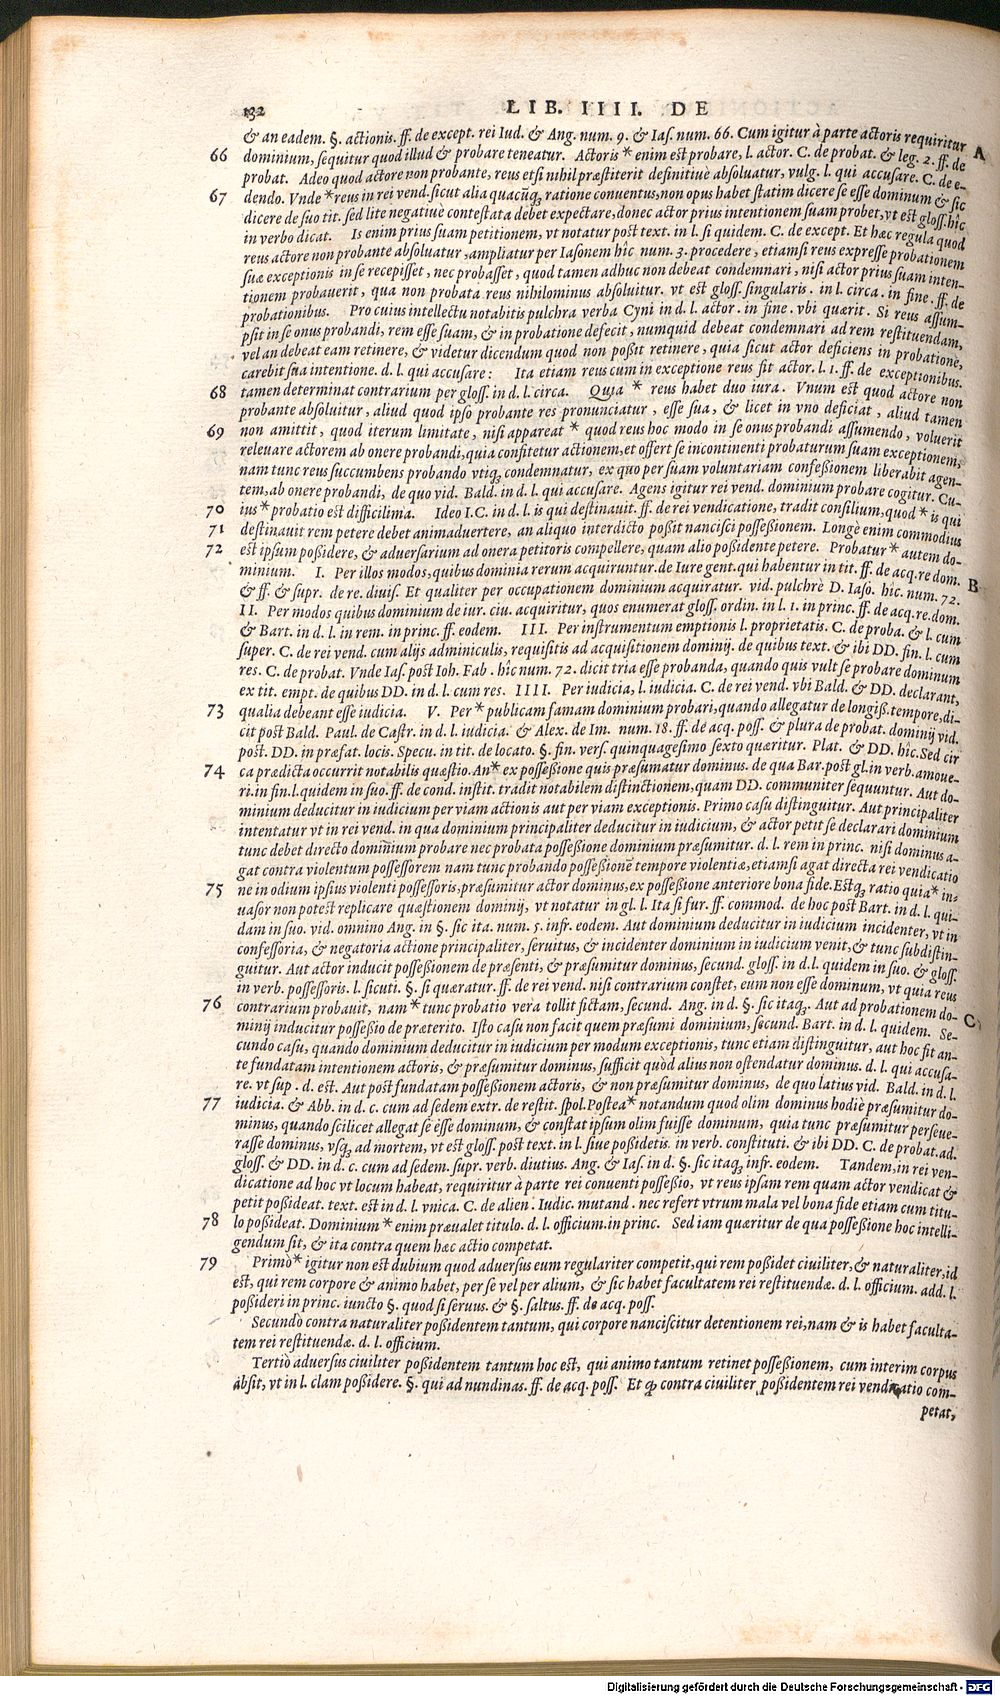 132 LIB. IIII. DE
& an eadem. §. actionis. ff. de except. rei Iud. & Ang. num. 9. & Ias. num. 66. Cum igitur à parte actoris requiritur A
66 dominium, sequitur quod illud & probare teneatur. Actoris * enim est probare, l. actor. C. de probat. & leg. 2. ff. de
probat. Adeo quod actore non probante, reus etsi nihil præstiterit definitiuè absoluatur, vulg. l. qui accusare. C. de e-
67 dendo. Vnde *reus in rei vend. sicut alia quacūq; ratione conuentus, non opus habet statim dicere se esse dominum & sic
dicere de suo tit. sed lite negatiuè contestata debet expectare, donec actor prius intentionem suam probet, vt est gloss. hîc
in verbo dicat. Is enim prius suam petitionem, vt notatur post text. in l. si quidem. C. de except. Et hæc regula quod
reus actore non probante absoluatur, ampliatur per Iasonem hîc num. 3. procedere, etiamsi reus expresse probationem
suæ exceptionis in se recepisset, nec probasset, quod tamen adhuc non debeat condemnari, nisi actor prius suam inten-
tionem probauerit, qua non probata reus nihilominus absoluitur. vt est gloss. singularis. in l. circa. in fine. ff. de
probationibus. Pro cuius intellectu notabitis pulchra verba Cyni in d. l. actor. in fine. vbi quærit. Si reus assum-
psit in se onus probandi, rem esse suam, & in probatione defecit, numquid debeat condemnari ad rem restituendam,
vel an debeat eam retinere, & videtur dicendum quod non poßit retinere, quia sicut actor deficiens in probatione,
carebit sua intentione. d. l. qui accusare: Ita etiam reus cum in exceptione reus sit actor. l. 1. ff. de exceptionibus.
68 tamen determinat contrarium per gloss. in d. l. circa. Quia * reus habet duo iura. Vnum est quod actore non
probante absoluitur, aliud quod ipso probante res pronunciatur, esse sua, & licet in vno deficiat, aliud tamen
69 non amittit, quod iterum limitate, nisi appareat * quod reus hoc modo in se onus probandi assumendo, voluerit
releuare actorem ab onere probandi, quia confitetur actionem, et offert se incontinenti probaturum suam exceptionem,
nam tunc reus succumbens probando vtiq; condemnatur, ex quo per suam voluntariam confeßionem liberabit agen-
tem, ab onere probandi, de quo vid. Bald. in d. l. qui accusare. Agens igitur rei vend. dominium probare cogitur. Cu-
70 ius * probatio est difficilima. Ideo I.C. in d. l. is qui destinauit. ff. de rei vendicatione, tradit consilium, quod * is qui
71 destinauit rem petere debet animaduertere, an aliquo interdicto poßit nancisci posseßionem. Longè enim commodius
72 est ipsum poßidere, & aduersarium ad onera petitoris compellere, quam alio poßidente petere. Probatur * autem do-
minium. I. Per illos modos, quibus dominia rerum acquiruntur. de Iure gent. qui habentur in tit. ff. de acq. re dom. B
& ff. & supr. de re. diuis. Et qualiter per occupationem dominium acquiratur. vid. pulchrè D. Iaso. hîc. num. 72.
II. Per modos quibus dominium de iur. ciu. acquiritur, quos enumerat gloss. ordin. in l. 1. in princ. ff. de acq. re. dom.
& Bart. in d. l. in rem. in princ. ff. eodem. III. Per instrumentum emptionis l. proprietatis. C. de proba. & l. cum
super. C. de rei vend. cum alijs adminiculis, requisitis ad acquisitionem dominij. de quibus text. & ibi DD. fin. l. cum
res. C. de probat. Vnde Ias. post Ioh. Fab. hîc num. 72. dicit tria esse probanda, quando quis vult se probare dominum
ex tit. empt. de quibus DD. in d. l. cum res. IIII. Per iudicia, l. iudicia. C. de rei vend. vbi Bald. & DD. declarant,
73 qualia debeant esse iudicia. V. Per * publicam famam dominium probari, quando allegatur de longiß. tempore, di-
cit post Bald. Paul. de Castr. in d. l. iudicia. & Alex. de Im. num. 18. ff. de acq. poss. & plura de probat. dominij vid.
post. DD. in præfat. locis. Specu. in tit. de locato. §. fin. vers. quinquagesimo sexto quæritur. Plat. & DD. hîc. Sed cir
74 ca prædicta occurrit notabilis quæstio. An * ex posseßione quis præsumatur dominus. de qua Bar. post gl. in verb. amoue-
ri. in fin. l. quidem in suo. ff. de cond. instit. tradit notabilem distinctionem, quam DD. communiter sequuntur. Aut do-
minium deducitur in iudicium per viam actionis aut per viam exceptionis. Primo casu distinguitur. Aut principaliter
intentatur vt in rei vend. in qua dominium principaliter deducitur in iudicium, & actor petit se declarari dominium
tunc debet directo domīnium probare nec probata posseßione dominium præsumitur. d. l. rem in princ. nisi dominus a-
gat contra violentum possessorem nam tunc probando posseßionē tempore violentiæ, etiamsi agat directa rei vendicatio
75 ne in odium ipsius violenti possessoris, præsumitur actor dominus, ex posseßione anteriore bona fide. Estq; ratio quia * in-
uasor non potest replicare quæstionem dominij, vt notatur in gl. l. Ita si fur. ff. commod. de hoc post Bart. in d. l. qui-
dam in suo. vid. omnino Ang. in §. sic ita. num. 5. infr. eodem. Aut dominium deducitur in iudicium incidenter, vt in
confessoria, & negatoria actione principaliter, seruitus, & incidenter dominium in iudicium venit, & tunc subdistin-
guitur. Aut actor inducit posseßionem de præsenti, & præsumitur dominus, secund. gloss. in d. l. quidem in suo. & gloss.
in verb. possessoris. l. sicuti. §. si quæratur. ff. de rei vend. nisi contrarium constet, eum non esse dominum, vt quia reus
76 contrarium probauit, nam * tunc probatio vera tollit fictam, secund. Ang. in d. §. sic itaq;. Aut ad probationem do-
minij inducitur posseßio de præterito. Isto casu non facit quem præsumi dominium, secund. Bart. in d. l. quidem. Se- C
cundo casu, quando dominium deducitur in iudicium per modum exceptionis, tunc etiam distinguitur, aut hoc fit an-
te fundatam intentionem actoris, & præsumitur dominus, sufficit quòd alius non ostendatur dominus. d. l. qui accusa-
re. vt sup. d. est. Aut post fundatam posseßionem actoris, & non præsumitur dominus, de quo latius vid. Bald. in d. l.
77 iudicia. & Abb. in d. c. cum ad sedem extr. de restit. spol. Postea * notandum quod olim dominus hodiè præsumitur do-
minus, quando scilicet allegat se esse dominum, & constat ipsum olim fuisse dominum, quia tunc præsumitur perseue-
rasse dominus, vsq; ad mortem, vt est gloss. post text. in l. siue poßidetis. in verb. constituti. & ibi DD. C. de probat. ad.
gloss. & DD. in d. c. cum ad sedem. supr. verb. diutius. Ang. & Ias. in d. §. sic itaq; infr. eodem. Tandem, in rei ven-
dicatione ad hoc vt locum habeat, requiritur à parte rei conuenti posseßio, vt reus ipsam rem quam actor vendicat &
petit poßideat. text. est in d. l. vnica. C. de alien. Iudic. mutand. nec refert vtrum mala vel bona fide etiam cum titu-
78 lo poßideat. Dominium * enim præualet titulo. d. l. officium. in princ. Sed iam quæritur de qua posseßione hoc intelli-
gendum sit, & ita contra quem hæc actio competat.
79 Primò * igitur non est dubium quod aduersus eum regulariter competit, qui rem poßidet ciuiliter, & naturaliter, id
est, qui rem corpore & animo habet, per se vel per alium, & sic habet facultatem rei restituendæ. d. l. officium. add. l.
poßideri in princ. iuncto §. quod si seruus. & §. saltus. ff. de acq. poss.
Secundò contra naturaliter poßidentem tantum, qui corpore nanciscitur detentionem rei, nam & is habet faculta-
tem rei restituendæ. d. l. officium.
Tertiò aduersus ciuiliter poßidentem tantum hoc est, qui animo tantum retinet posseßionem, cum interim corpus
absit, vt in l. clam poßidere. §. qui ad nundinas. ff. de acq. poss. Et ꝙ contra ciuiliter poßidentem rei vendicatio com-
petat,
Digitalisierung gefördert durch die Deutsche Forschungsgemeinschaft - DFG